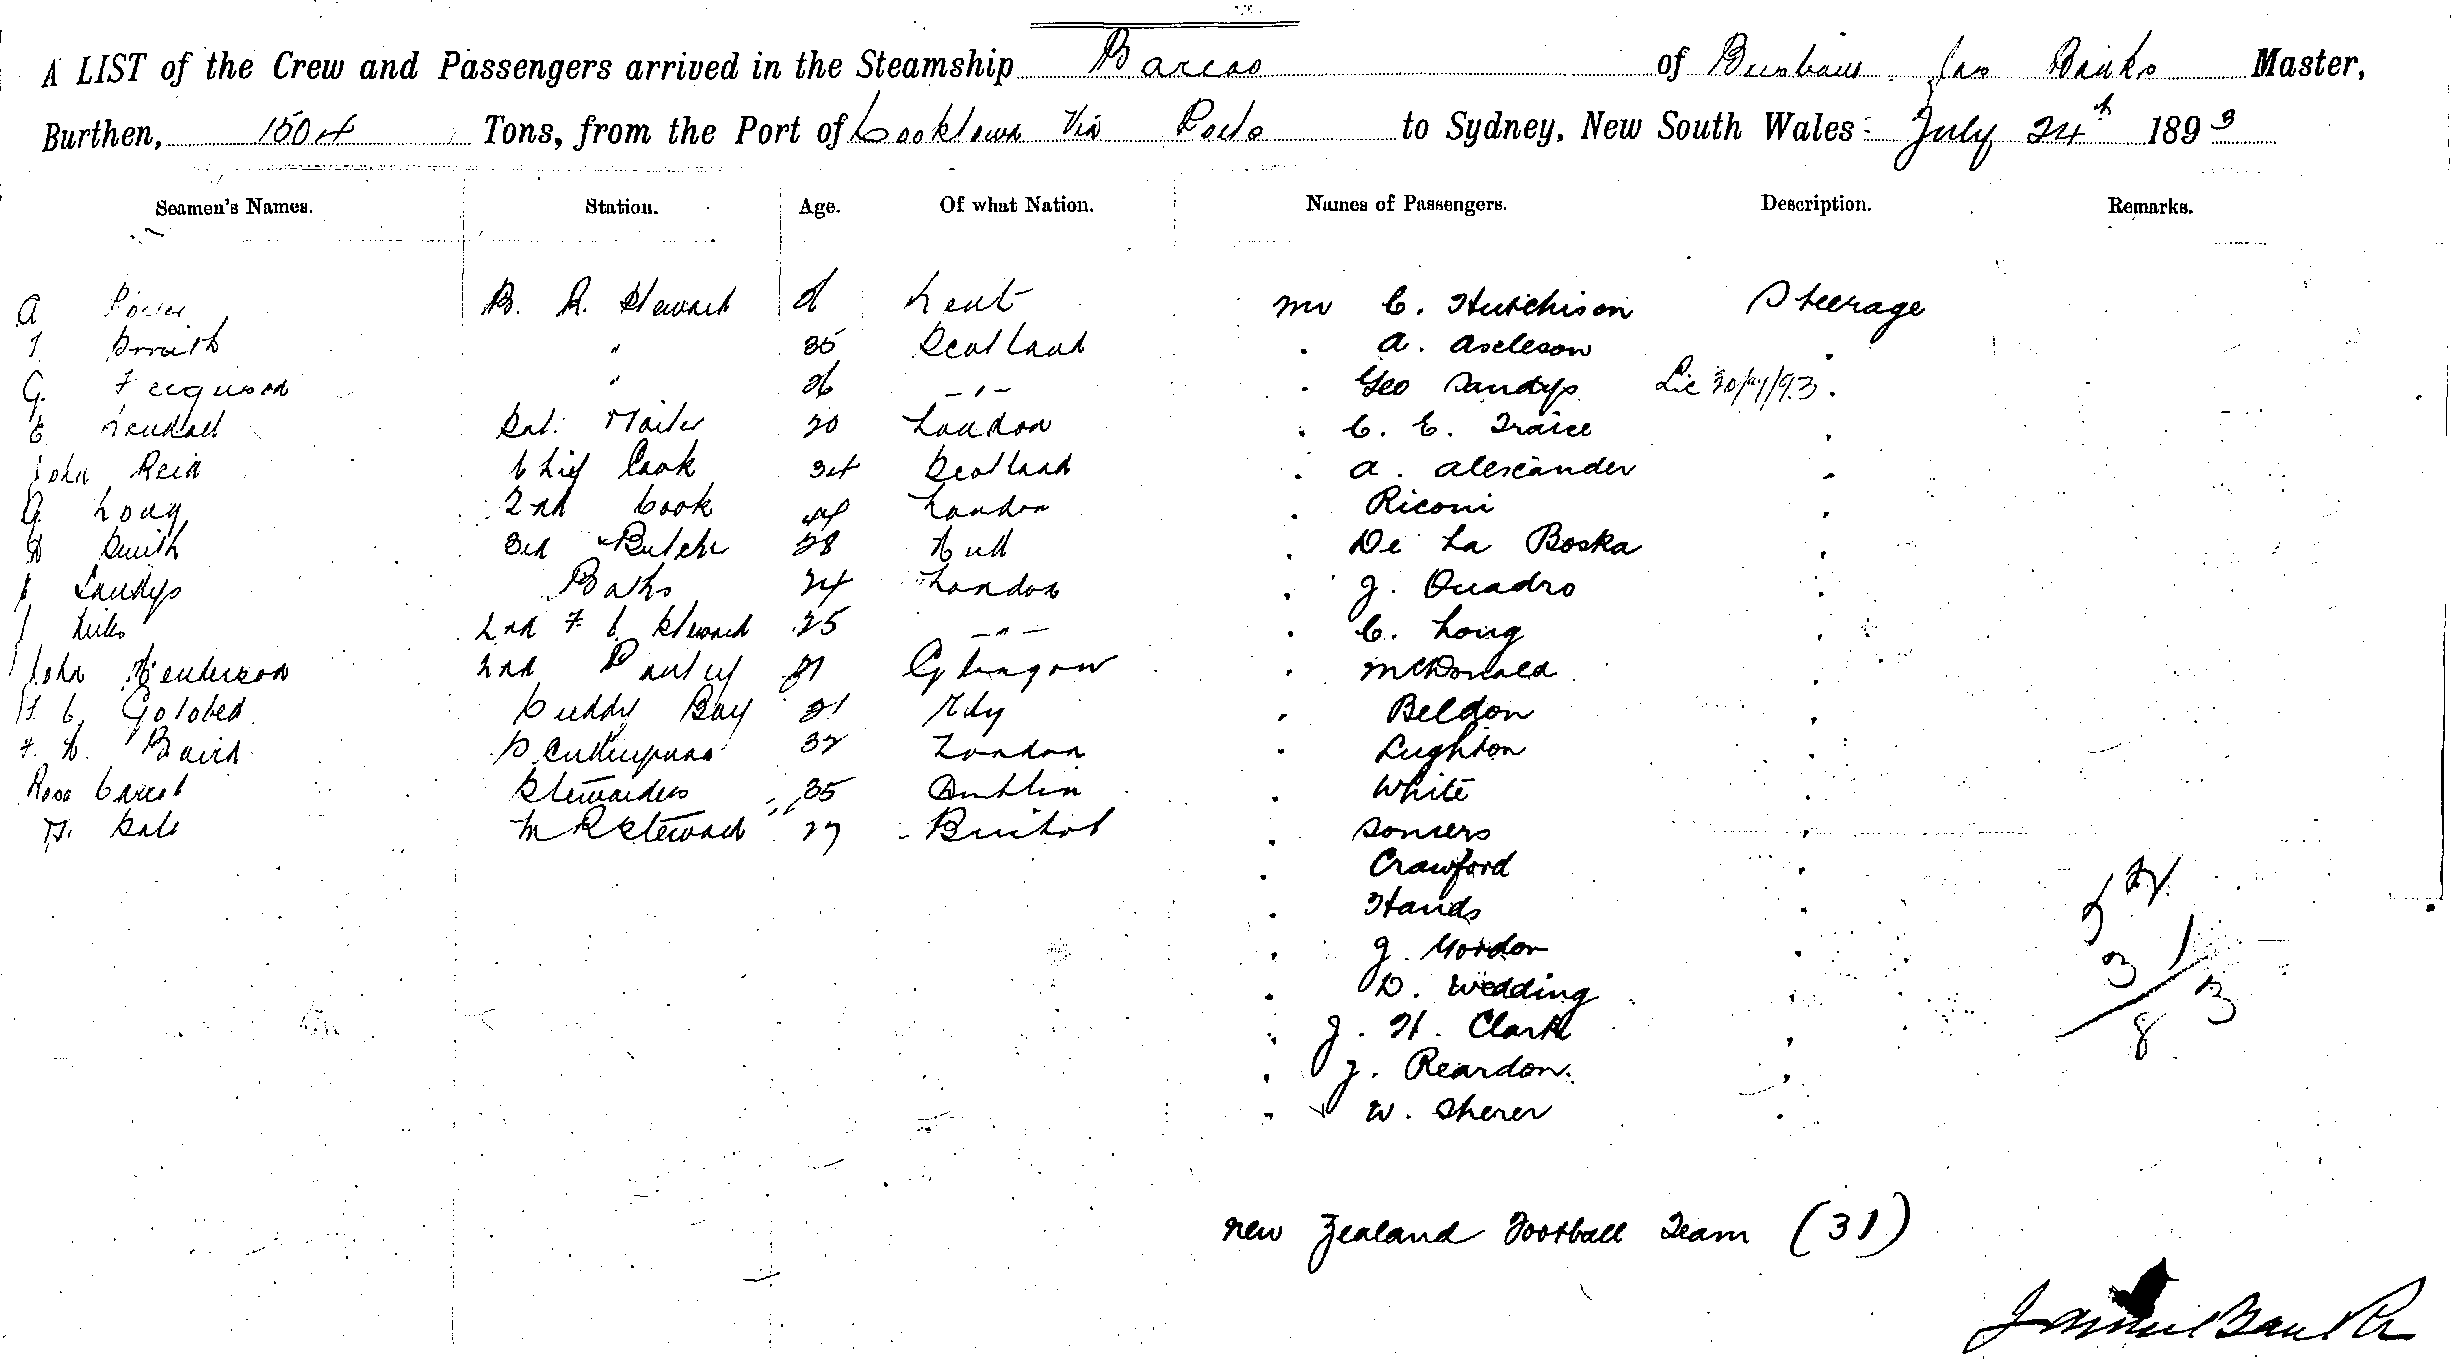 A LIST of the Crew and Passengers arrived in the Steamship Barcoo of Brisbane Jas Banks Master,
Burthen, 1504 Tons, from the Port of Cooktown Via Ports to Sydney, New South Wales: July 24th 1893
Seamen's Names. Station. Age. Of what Nation. Names of Passengers. Description. Remarks.
A B. R. Steward Kent Mr C. Hutchison Steerage
T Smith " 35 Scotland " A. Axelson "
G. Ferguson " 26 - " - " Geo Sandys Lic 30/7/93 "
E Kendall Sal. Waiter 20 London " C. E. Traice "
John Reid Chief Cook 34 Scotland " A. Alexander "
G. Long 2nd Cook London " Riconi "
H Smith 3rd " Butcher 28 Hull " De La Boska "
Sandys Baker 24 London " J. Quadro "
J Miles 2nd F. C. Steward 25 - " - " C. Long "
John Henderson 2nd Pantry 21 Glasgow " McDonald "
F. C. Golobed Cuddy Boy 21 Ely " Beldon "
F. H. Baird 32 London " Lughton "
Rose Carrol Stewardess 35 Dublin " White "
H. Sale M R Steward 27 Bristol " Somers "
" Crawford "
" Hands "
" J. Gordon "
" D. Wedding "
" J. H. Clark "
" J. Reardon. "
" W. Sherer "
52
31
83
New Zealand Football Team (31)
James Banks